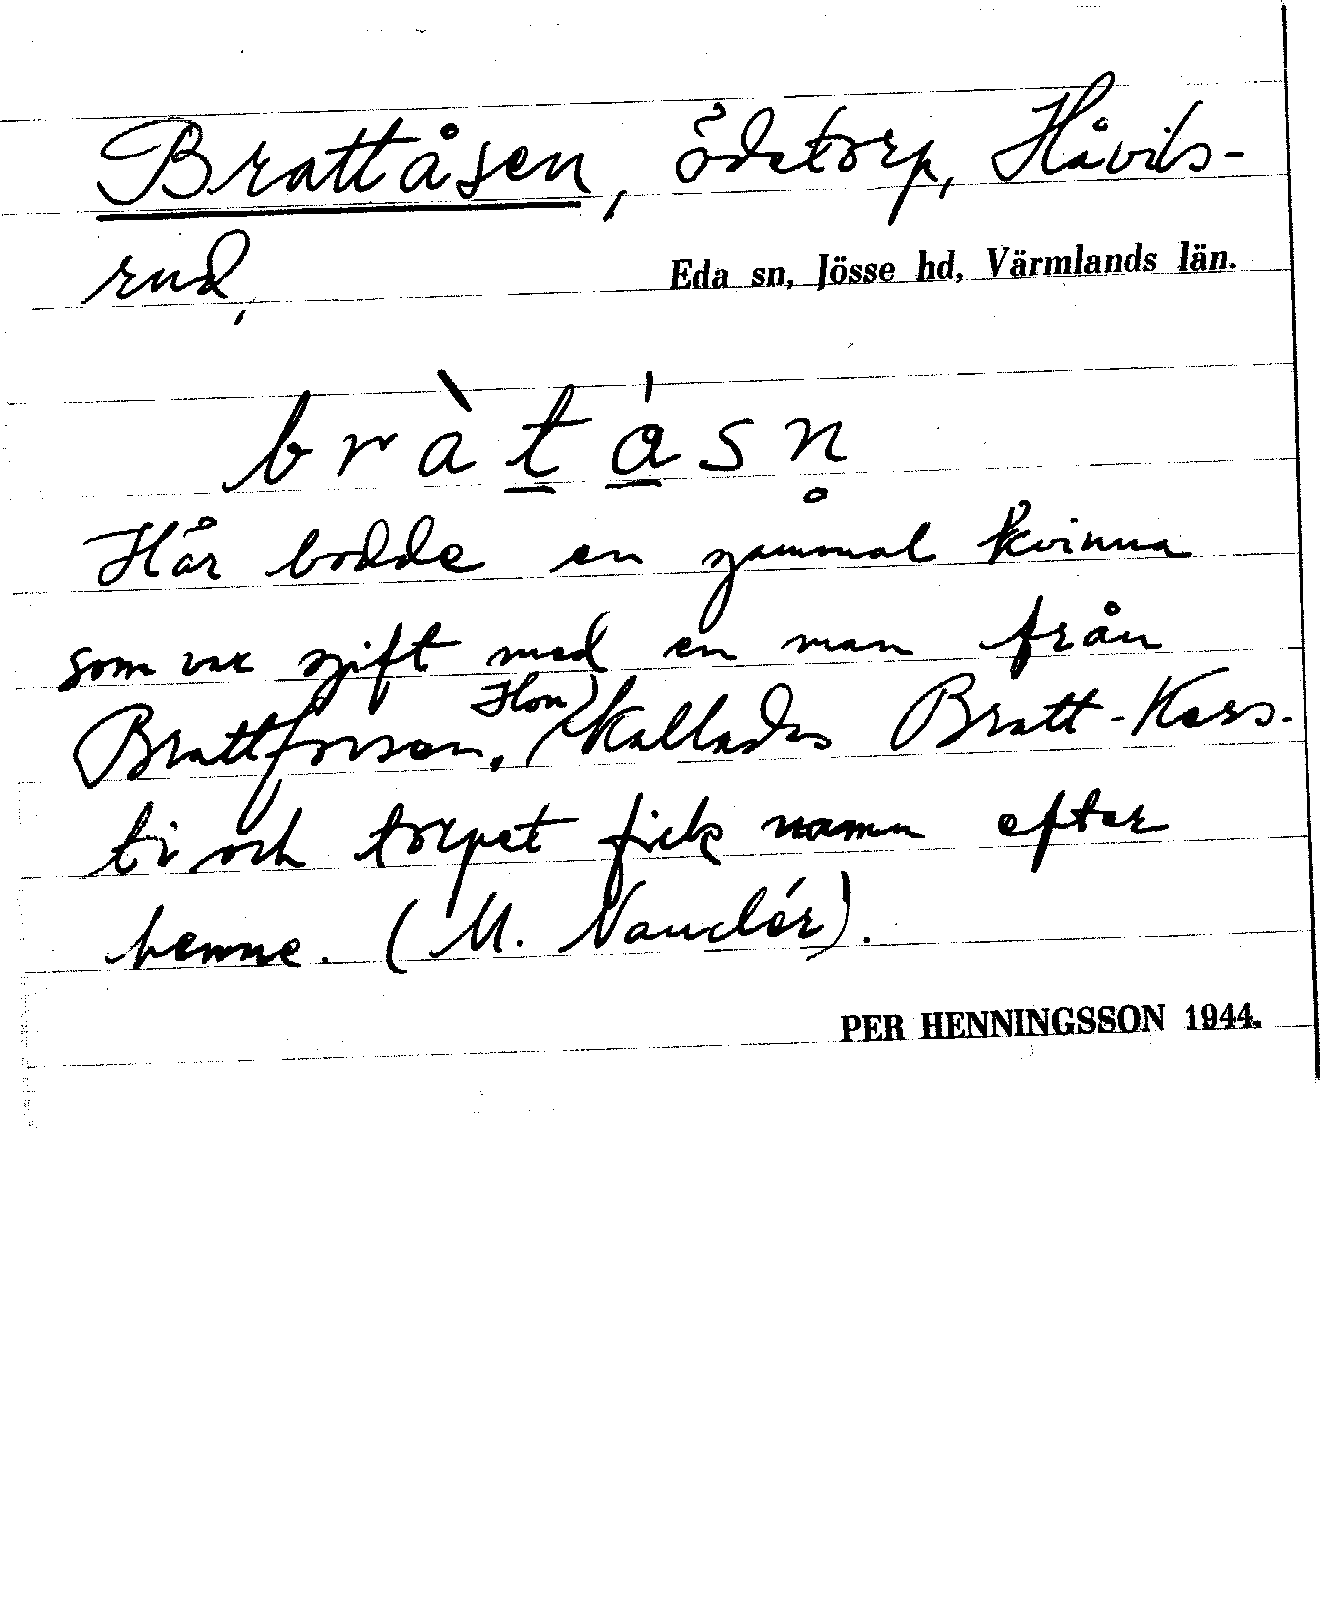 Brattåsen, ödetorp, Håvils-
rud,
Eda sn, Jösse hd, Värmlands län.
bràt̲á̲sn̥
Här bodde en gammal kvinna
som var gift med en man från
Brattforsen. Hon kallades Bratt-Kers-
ti och torpet fick namn efter
henne. (M. Nauclér).
PER HENNINGSSON 1944.